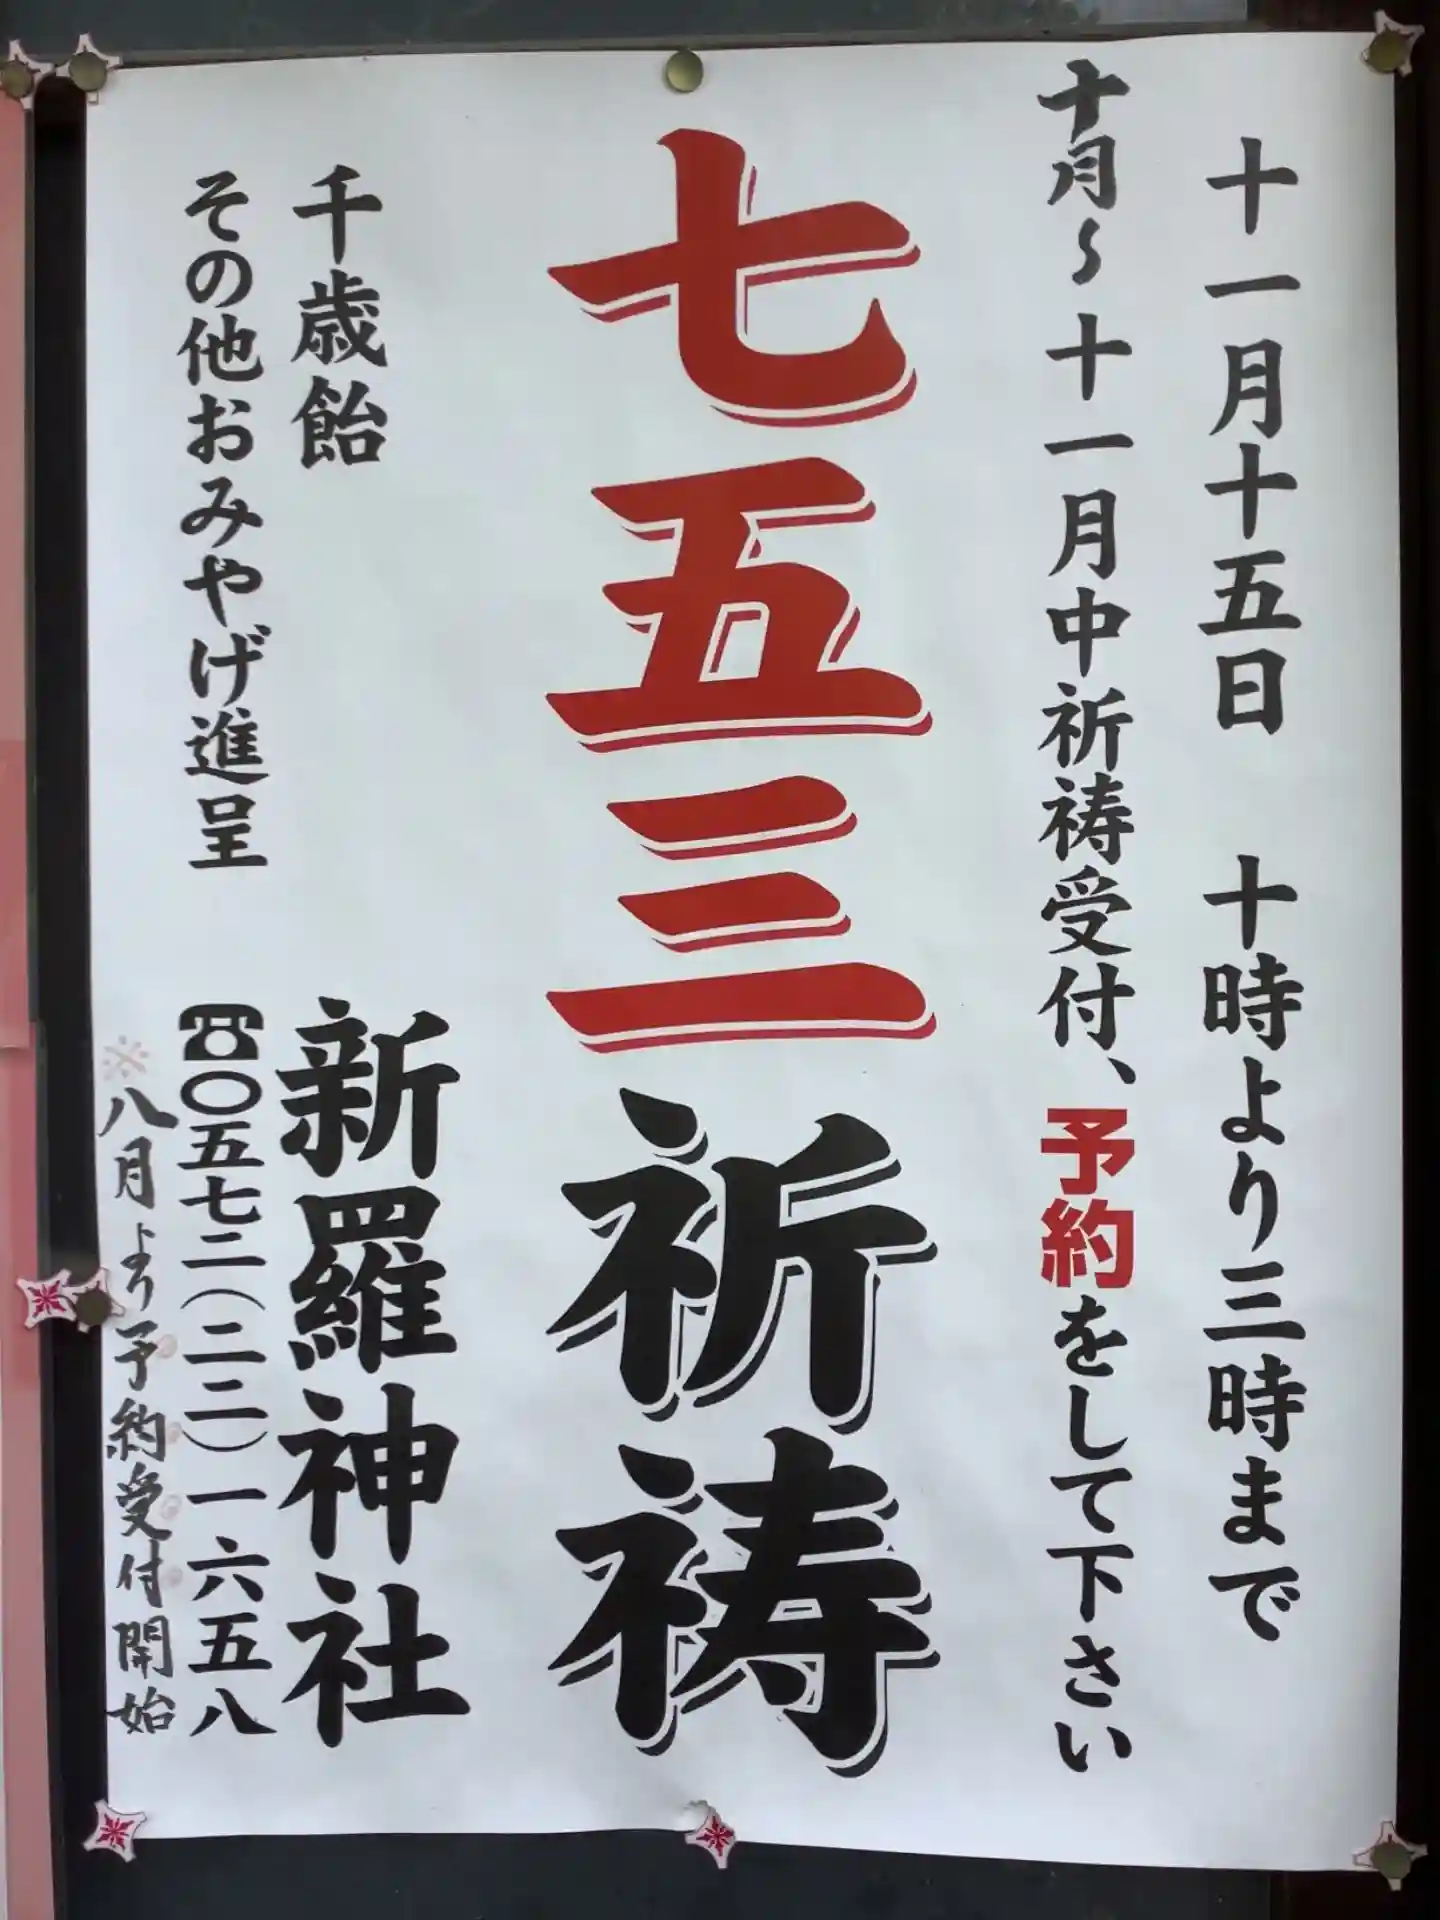 十一月十五日　十時より三時まで
十月〜十一月中祈祷受付、予約をして下さい
七五三祈祷
千歳飴
その他おみやげ進呈
新羅神社
☎〇五七二(二二)一六五八
※八月より予約受付開始